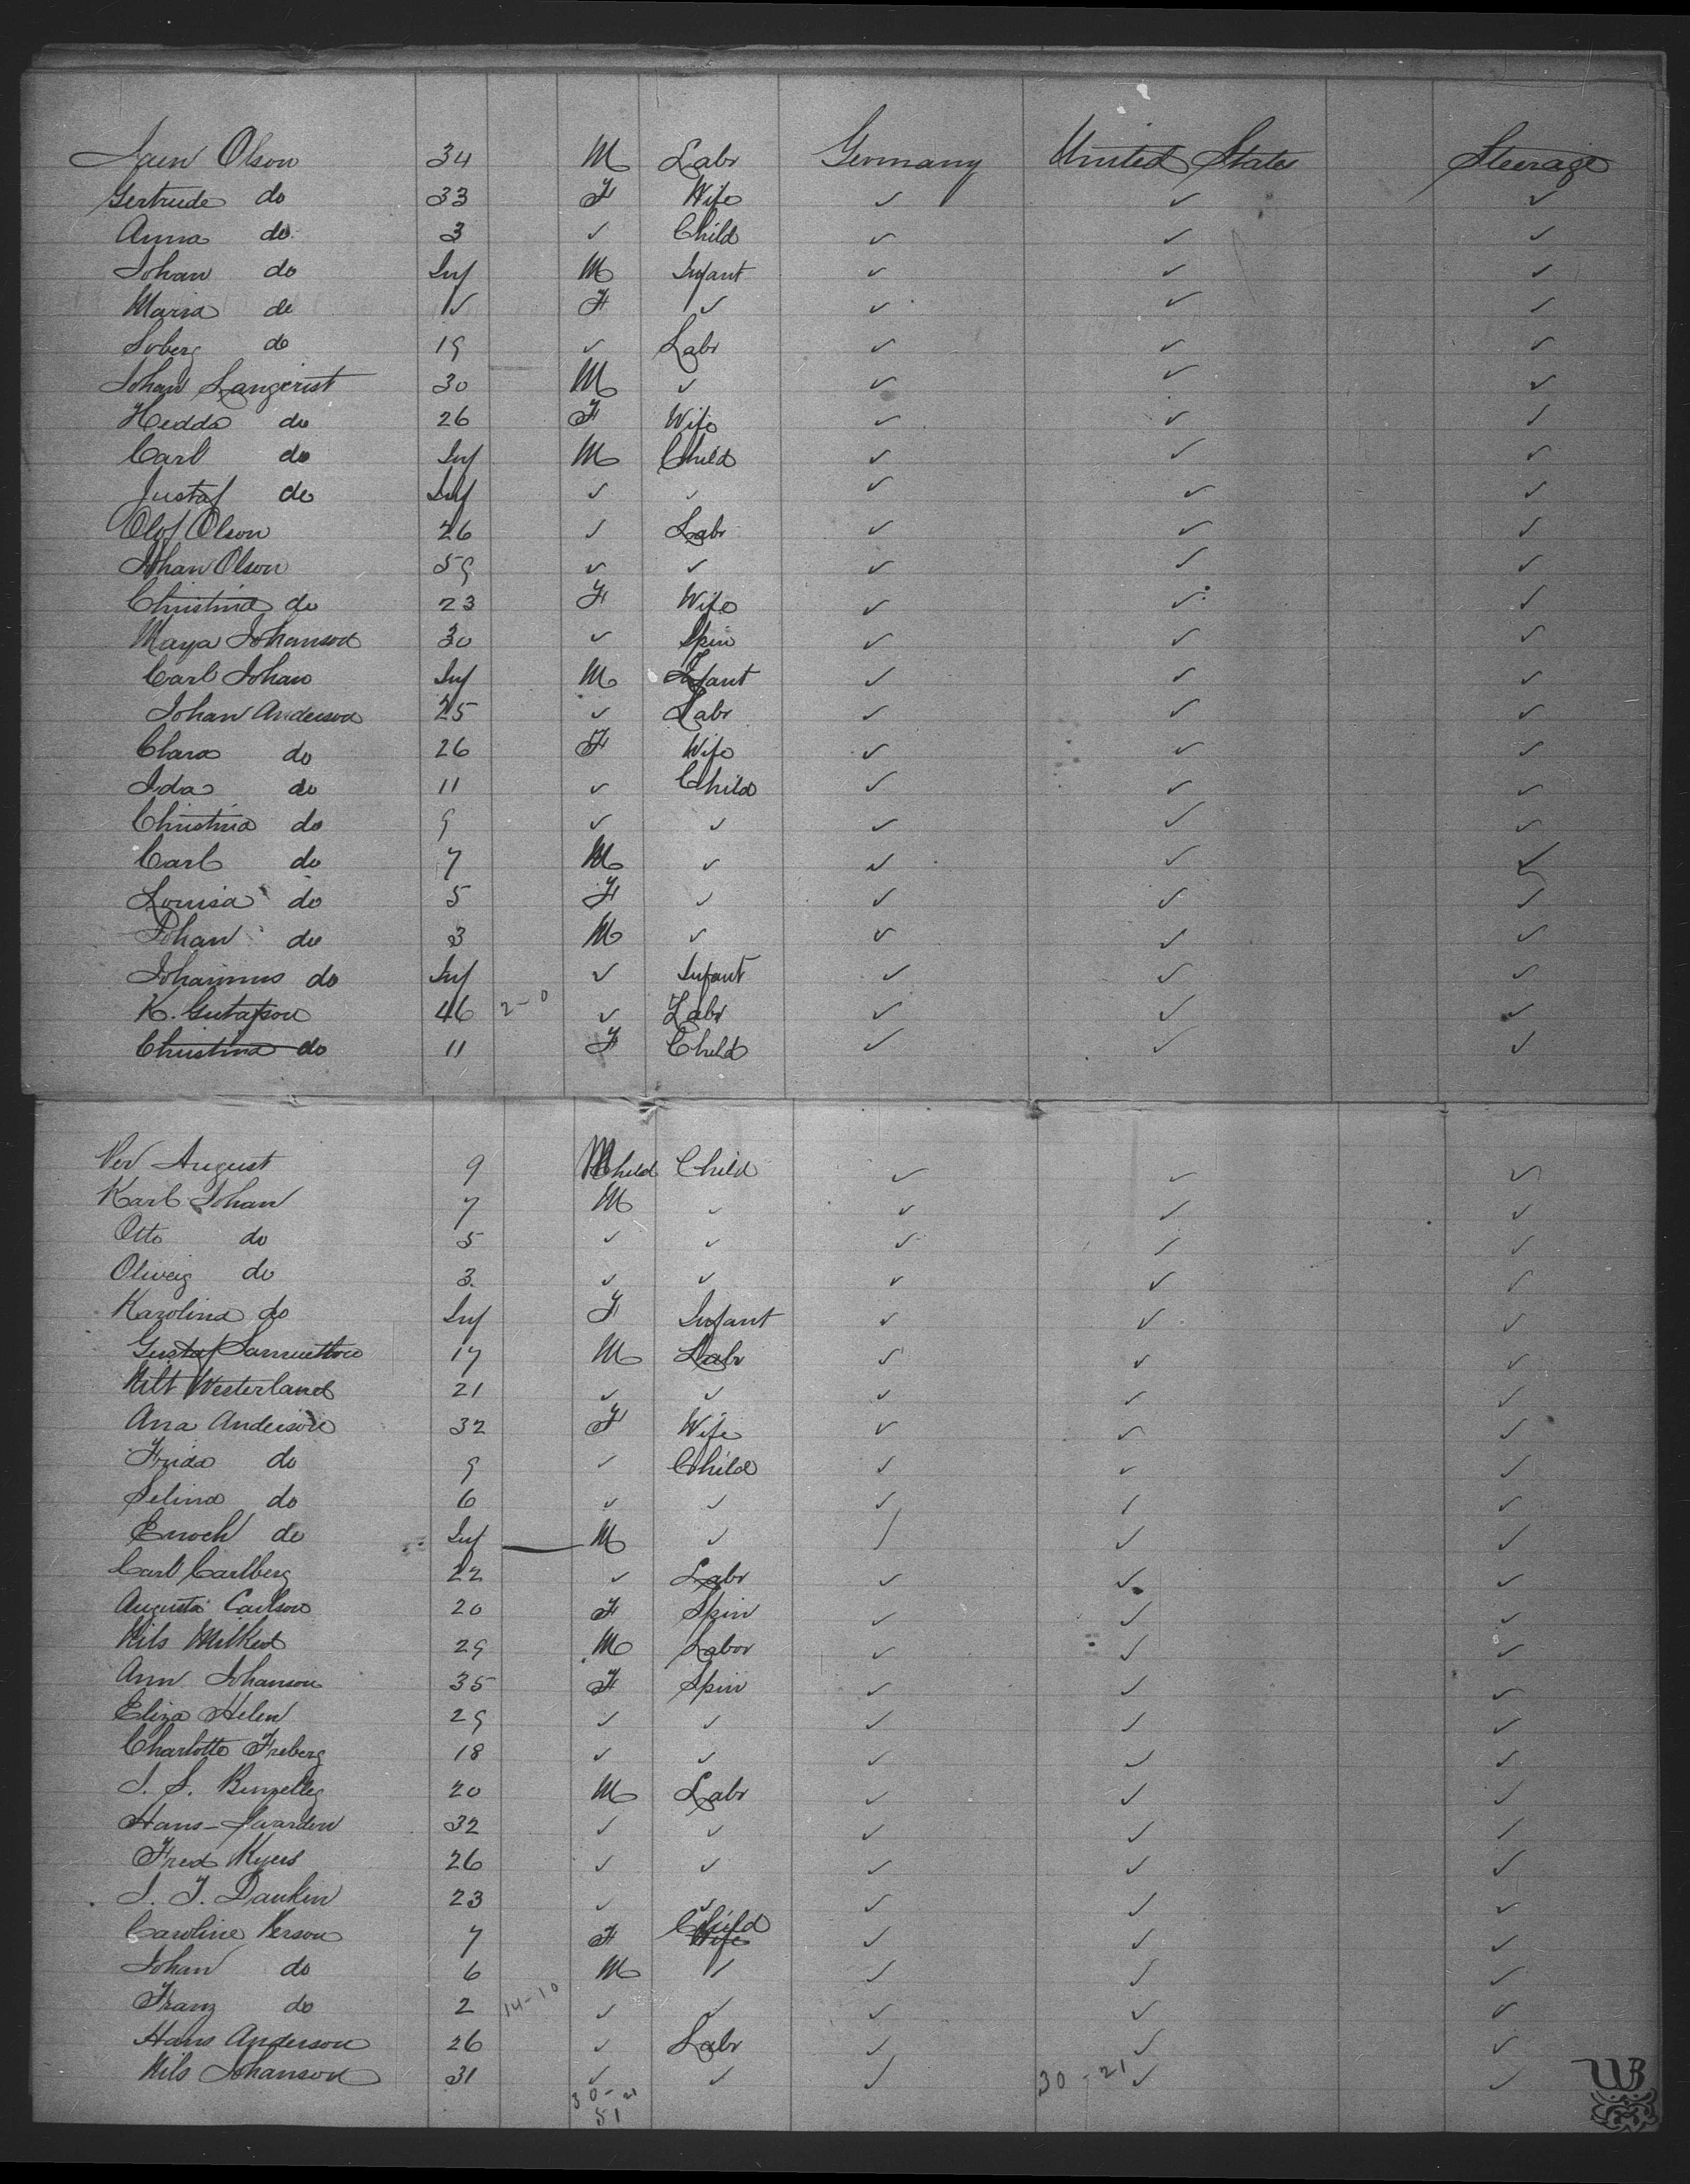 Olson 34 M Labr Germany United States Steerage
Gertrude do 33 F Wife ✓ ✓ ✓
Anna do 3 ✓ Child ✓ ✓ ✓
Johan do Inf M Infant ✓ ✓ ✓
Maria do ✓ F ✓ ✓ ✓ ✓
Soberg do 19 ✓ Labr ✓ ✓ ✓
Johan 30 M ✓ ✓ ✓ ✓
Hedda do 26 F Wife ✓ ✓ ✓
Carl do Inf M Child ✓ ✓ ✓
Gustaf do Inf ✓ ✓ ✓ ✓ ✓
Olof Olson 26 ✓ Labr ✓ ✓ ✓
Johan Olson 59 ✓ ✓ ✓ ✓ ✓
Christina do 23 F Wife ✓ ✓ ✓
Maya Johanson 30 ✓ Spin ✓ ✓ ✓
Carl Johan Inf M Infant ✓ ✓ ✓
Johan Anderson 25 ✓ Labr ✓ ✓ ✓
Clara do 26 F Wife ✓ ✓ ✓
Ida do 11 ✓ Child ✓ ✓ ✓
Christina do 9 ✓ ✓ ✓ ✓ ✓
Carl do 7 M ✓ ✓ ✓ ✓
Louisa do 5 F ✓ ✓ ✓ ✓
Johan do 3 M ✓ ✓ ✓ ✓
Johannus do Inf ✓ Infant ✓ ✓ ✓
K. Gustafson 46 2-0 ✓ Labr ✓ ✓ ✓
Christina do 11 F Child ✓ ✓ ✓
Per August 9 M Child Child ✓ ✓ ✓
Karl Johan 7 M ✓ ✓ ✓ ✓
Otto do 5 ✓ ✓ ✓ ✓ ✓
do 3 ✓ ✓ ✓ ✓ ✓
Karolina do Inf F Infant ✓ ✓ ✓
Gustaf 17 M Labr ✓ ✓ ✓
Westerland 21 ✓ ✓ ✓ ✓ ✓
Ana Anderson 32 F Wife ✓ ✓ ✓
Frida do 9 ✓ Child ✓ ✓ ✓
Selina do 6 ✓ ✓ ✓ ✓ ✓
Enoch do Inf M ✓ ✓ ✓ ✓
Carl Carlberg 22 ✓ Labr ✓ ✓ ✓
Augusta Carlson 20 F Spin ✓ ✓ ✓
Nils 29 M Labor ✓ ✓ ✓
Ann Johanson 35 F Spin ✓ ✓ ✓
Eliza Helen 29 ✓ ✓ ✓ ✓ ✓
Charlotte Freberg 18 ✓ ✓ ✓ ✓ ✓
J. S. 20 M Labr ✓ ✓ ✓
Hans 32 ✓ ✓ ✓ ✓ ✓
Fred Myers 26 ✓ ✓ ✓ ✓ ✓
J. J. Dankin 23 ✓ ✓ ✓ ✓ ✓
Caroline Person 7 F Child Wife ✓ ✓ ✓
Johan do 6 M ✓ ✓ ✓ ✓
Franz do 2 14-10 ✓ ✓ ✓ ✓ ✓
Hans Anderson 26 ✓ Labr ✓ ✓ ✓
Nils Johanson 31 ✓ ✓ ✓ 30-21 ✓ ✓
30-21
51
WB